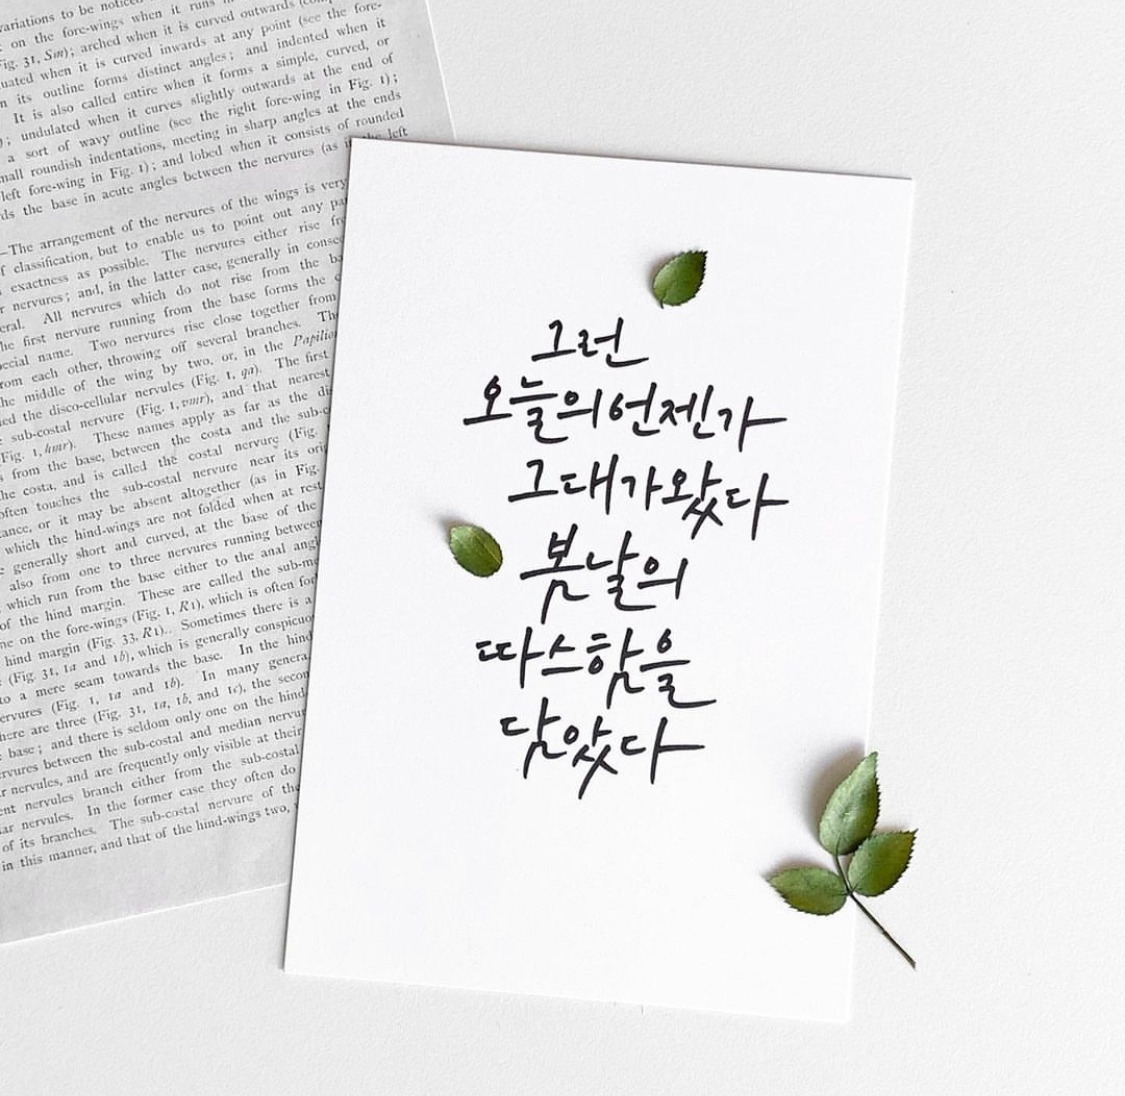 variations to be noticed
on the fore-wings when it runs in
Fig. 31, Sm); arched when it is curved outwards
uated when it is curved inwards at any point (see the fore-
n its outline forms distinct angles; and indented when it
It is also called entire when it forms a simple, curved, or
); undulated when it curves slightly outwards at the end of
a sort of wavy outline (see the right fore-wing in Fig. 1);
mall roundish indentations, meeting in sharp angles at the ends
left fore-wing in Fig. 1); and lobed when it consists of rounded
ds the base in acute angles between the nervures (as in the left
—The arrangement of the nervures of the wings is very
f classification, but to enable us to point out any
exactness as possible. The nervures either rise
r nervures; and, in the latter case, generally in
eral. All nervures which do not rise from the
he first nervure running from the base forms the
ecial name. Two nervures rise close together from
om each other, throwing off several branches. The
he middle of the wing by two, or, in the
ed the disco-cellular nervules (Fig. 1, ). The first
sub-costal nervure (Fig. 1, ), and that nearest
Fig. 1, ). These names apply as far as the
from the base, between the costa and the
he costa, and is called the costal nervure (Fig.
often touches the sub-costal nervure near its
ance, or it may be absent altogether (as in Fig.
which the hind-wings are not folded when at rest
generally short and curved, at the base of the
also from one to three nervures running between
which run from the base either to the anal
of the hind margin. These are called the
ne on the fore-wings (Fig. 1, R1), which is often
hind margin (Fig. 33, R1).. Sometimes there is a
(Fig. 31, 1a and 1b), which is generally
to a mere seam towards the base. In the hind
ervures (Fig. 1, 1a and 1b). In many
here are three (Fig. 31, 1a, 1b, and 1c), the
base; and there is seldom only one on the hind
rvures between the sub-costal and median
r nervules, and are frequently only visible at their
ent nervules branch either from the sub-costal
ar nervules. In the former case they often do
of its branches. The sub-costal nervure of the
in this manner, and that of the hind-wings two,
그런
오늘의 언젠가
그대가 왔다
봄날의
따스함을
담았다